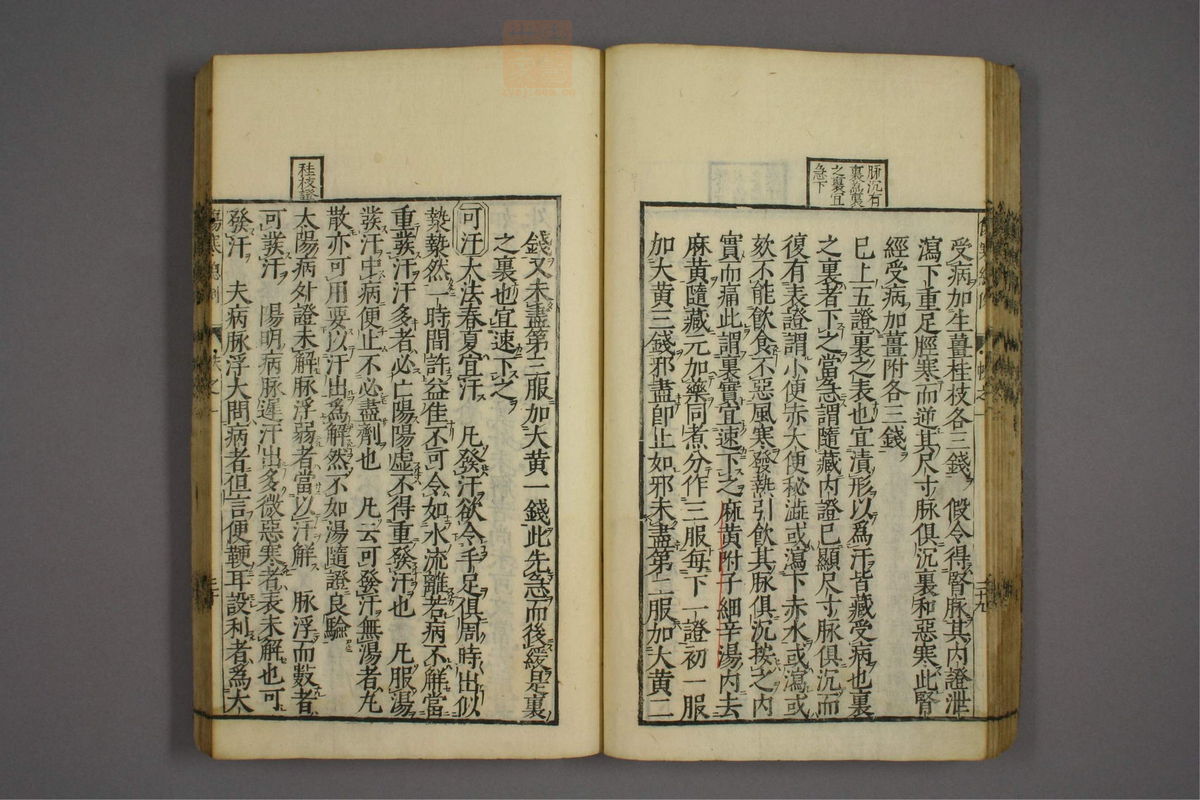 脉沉有
裏急裏
之裏宜
急下
受病加生薑桂枝各三錢　假令得腎脉其内證泄
瀉下重足脛寒而逆其尺寸脉俱沉裏和惡寒此腎
經受病加薑附各三錢
已上五證裏之表也宜漬形以爲汗皆藏受病也裏
之裏者下之當急謂隨藏内證已顯尺寸脉俱沉而
復有表證謂小便赤大便秘澁或瀉下赤水或瀉或
欬不能飲食不惡風寒發熱引飲其脉俱沉按之内
實而痛此謂裏實宜速下之麻黄附子細辛湯内去
麻黄隨藏元加藥同煮分作三服每下一證初一服
加大黄三錢邪盡即止如邪未盡第二服加大黄二
二十九
桂枝證
錢又未盡第三服加大黄一錢此先急而後緩是裏
之裏也宜速下之
可汗大法春夏宜汗　凡發汗欲令手足俱周時出似
漐漐然一時間許益佳不可令如水流離若病不解當
重發汗汗多者必亡陽陽虚不得重發汗也　凡服湯
發汗中病便止不必盡劑也　凡云可發汗無湯者丸
散亦可用要以汗出爲解然不如湯隨證良驗
太陽病外證未解脉浮弱者當以汗解　脉浮而數者
可發汗　陽明病脉遲汗出多微惡寒者表未解也可
發汗　夫病脉浮大問病者但言便鞕耳設利者爲大